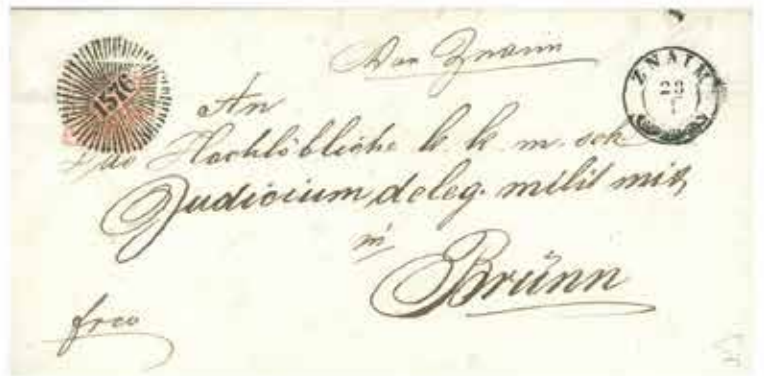 Von Znaim
1576
ZNAIM
28
1
An
Das Hochlöbliche k. k. m. sch.
Judicium deleg. milit mix
in
Brünn
frco